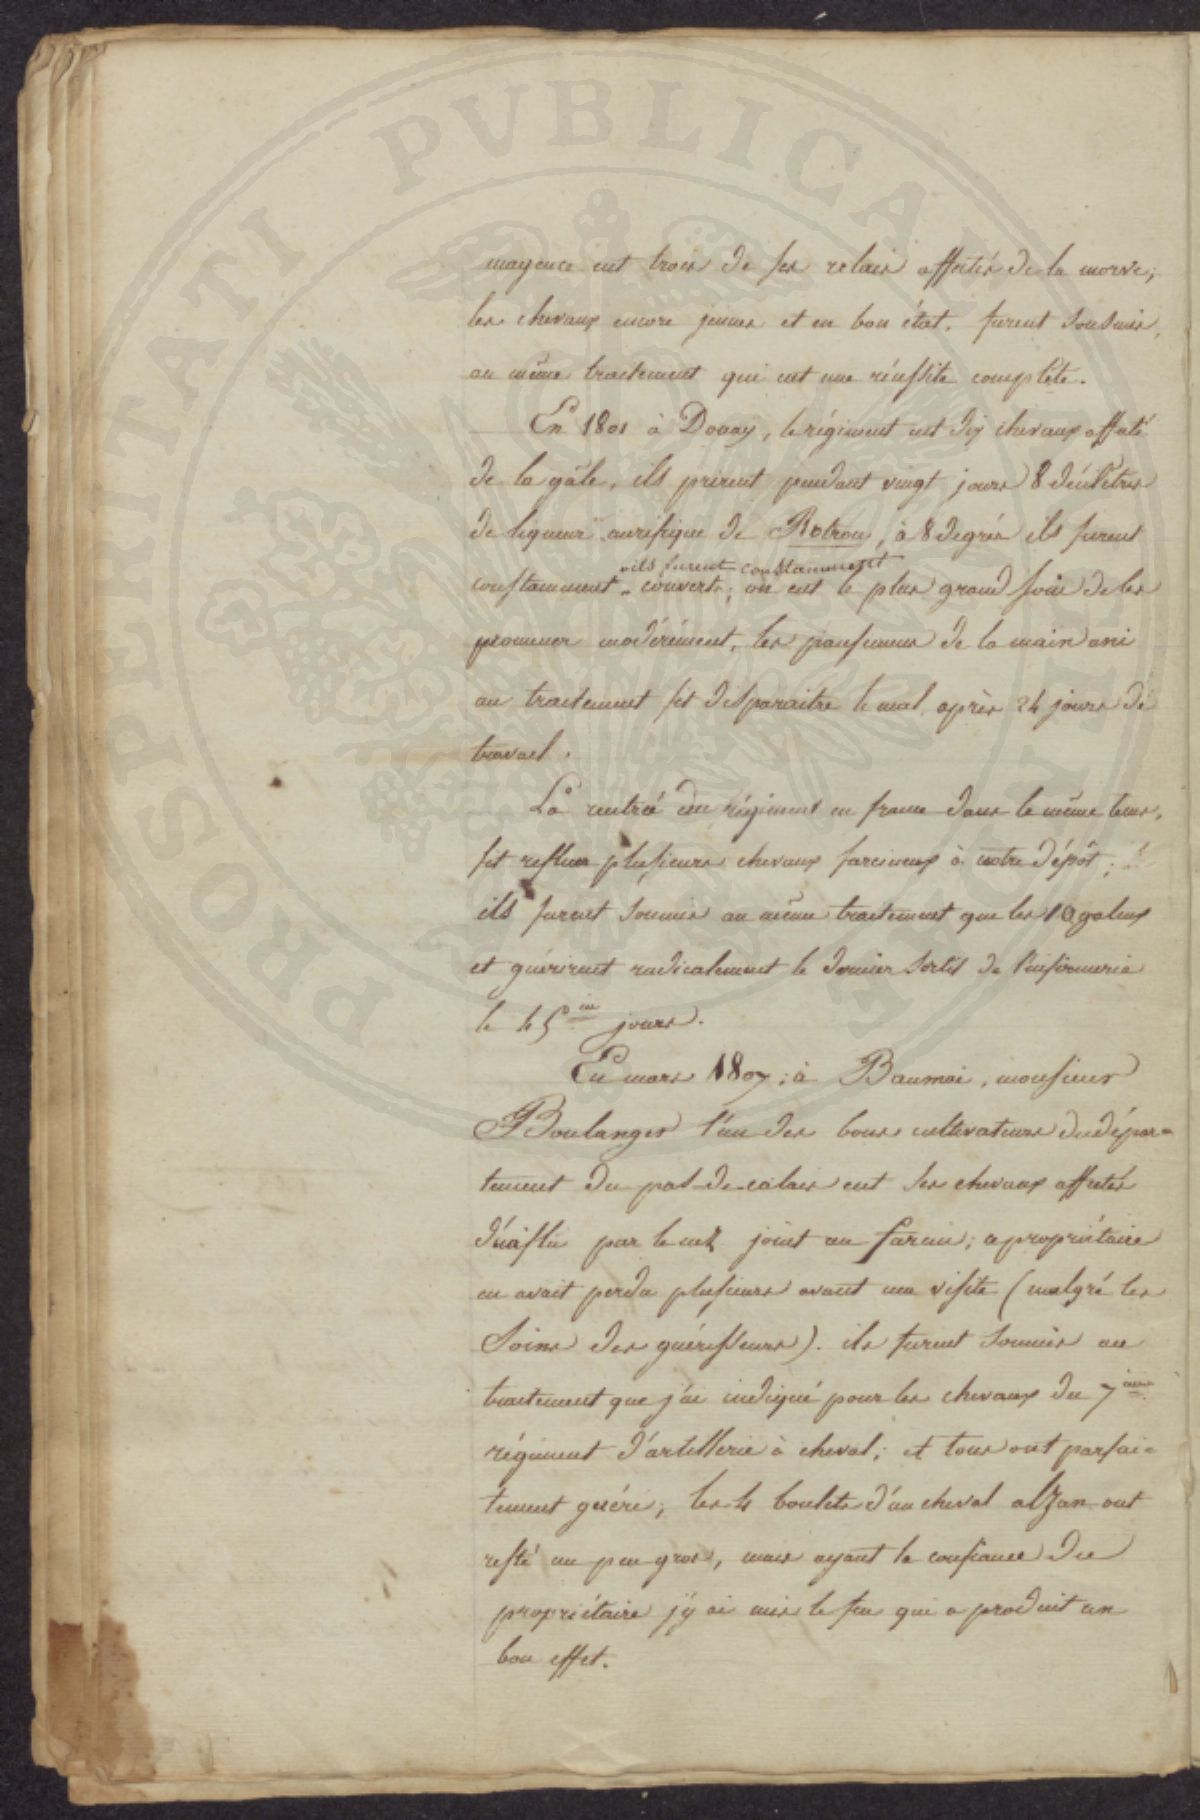 PROSPERITATI PUBLICAE
mayence eut trois de ses relais affectés de la morve;
les chevaux encore jeunes et en bon état, furent soumis
au même traitement qui eut une réussite complète.
En 1801 à Douay, le régiment eut dix chevaux affecté
de la gâle, ils prirent pendant vingt jours 8 décilitres
de liqueur aurifique de Rotrou, à 8 degrés ils furent
ils furent constamment
constamment couverts; on eut le plus grand soin de les
promener modérément, les pansemens de la main uni
au traitement fit disparaitre le mal après 24 jours de
travail.
La rentrée du régiment en france dans le même tems,
fit refluer plusieurs chevaux farcineux à notre dépôt;
ils furent soumis au même traitement que les 10 galeux
et guérirent radicalement le dernier sortit de l'infirmerie
le 45ème jours.
En mars 1807; à Baumai, monsieur
Boulanger l'un des bons cultivateurs du dépar=
tement du pas-de-calais eut ses chevaux affectés
par le nez joint au farcin; ce propriétaire
en avait perdu plusieurs avant ma visite (malgré les
soins des guérisseurs). ils furent soumis au
traitement que j'ai indiqué pour les chevaux du 7ème
régiment d'artillerie à cheval; et tous ont parfai=
tement guéri; les 4 boulets d'un cheval alzan ont
resté un peu gros, mais ayant la confiance du
propriétaire j'y ai mis le feu qui a produit un
bon effet.